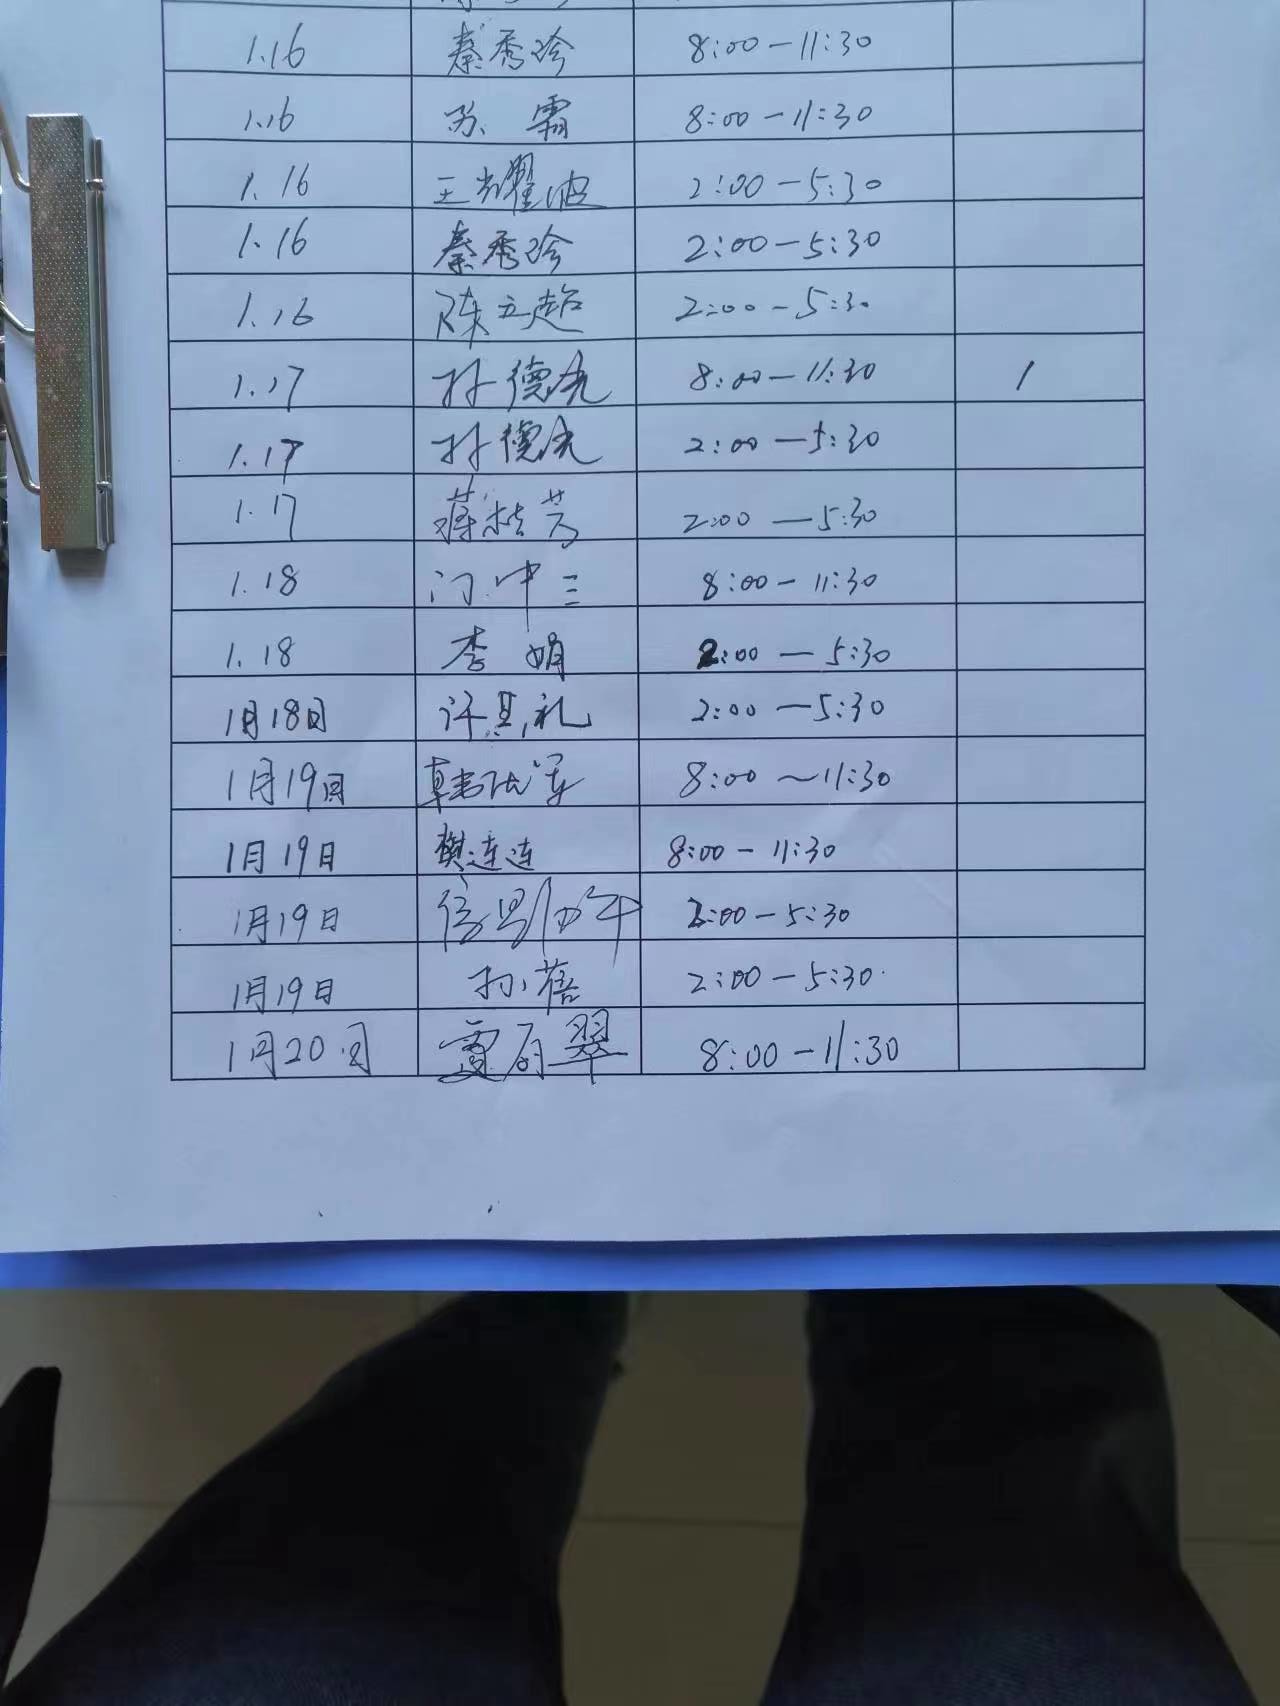 1.16 秦秀珍 8:00-11:30
1.16 苏霜 8:00-11:30
1.16 王耀波 2:00-5:30
1.16 秦秀珍 2:00-5:30
1.16 陈立超 2:00-5:30
1.17 孙德光 8:00-11:30 1
1.17 孙德光 2:00-5:30
1.17 蒋桂芳 2:00-5:30
1.18 门中三 8:00-11:30
1.18 李娟 2:00-5:30
1月18日 许其礼 2:00-5:30
1月19日 韩 军 8:00~11:30
1月19日 樊连连 8:00-11:30
1月19日 2:00-5:30
1月19日 孙蓓 2:00-5:30
1月20日 翠 8:00-11:30